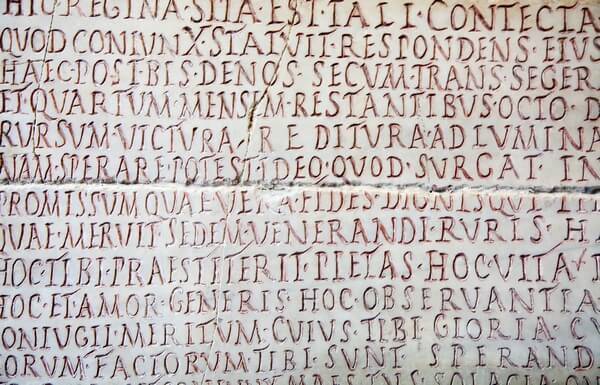 HIC·REGINA·SITA·EST·TALI·CONTECTA
QUOD CONIUNX·STATUIT·RESPONDENS·EIUS
HAEC·POST·BIS·DENOS·SECVM·TRANS·SEGER
ET·QVARTVM·MENSEM·RESTANTIBUS·OCTO·D
RVRSVM·VICTVRA·REDITVRA·AD·LVMINA
NAM·SPERARE·POTEST·IDEO·QVOD·SVRGAT·IN
PROMISSVM·QVAE·VERA·FIDES·DIGNISQVE
QVAE·MERVIT·SEDEM·VENERANDI·RVRIS·H
HOC·TIBI·PRAESTITERIT·PIETAS·HOC·VITA·P
HOC·ET·AMOR·GENERIS·HOC·OBSERVANTIA
CONIVGII·MERITVM·CVIVS·TIBI·GLORIA·CV
HORVM·FACTORVM·TIBI·SVNT·SPERAND